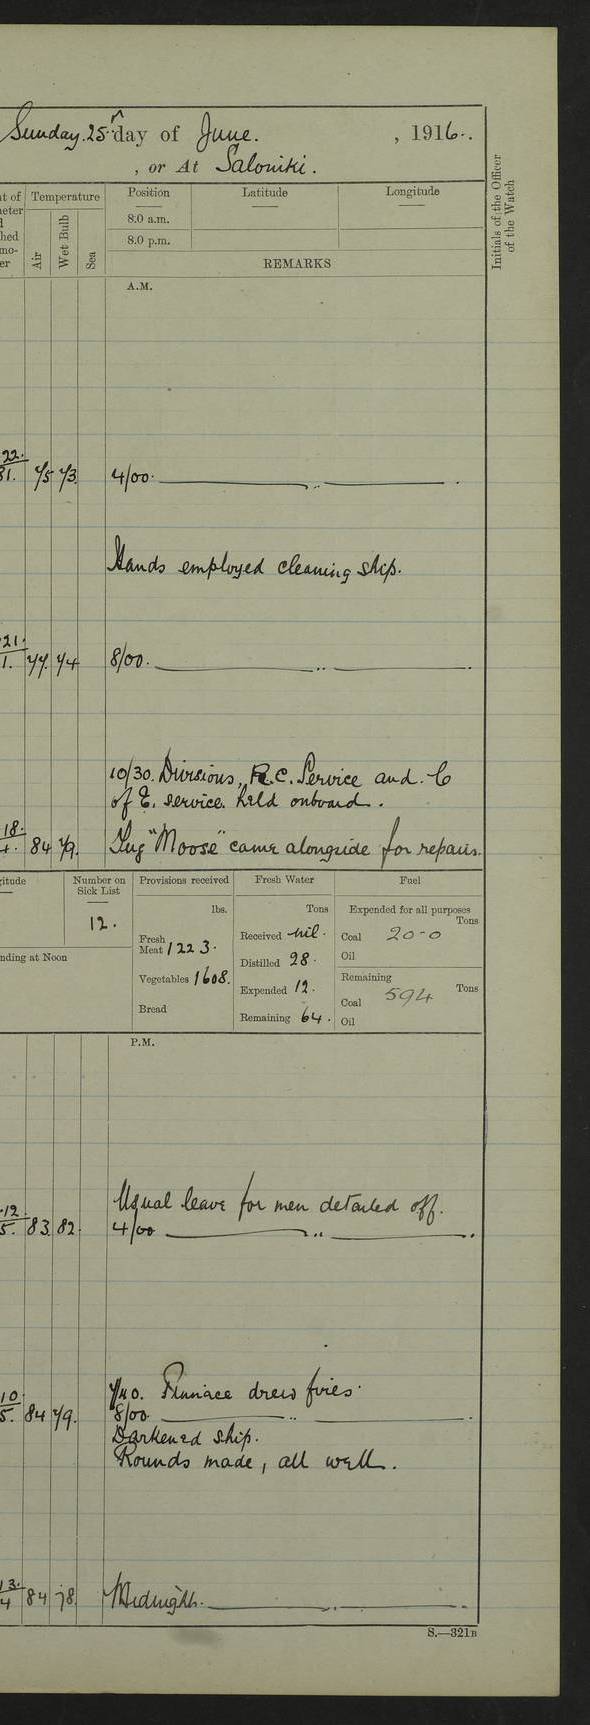 Sunday. 25th day of June. , 1916.
, or At Saloniki.
Temperature
Air
Wet Bulb
Sea
Position
Latitude
Longitude
8.0 a.m.
8.0 p.m.
REMARKS
Initials of the Officer
of the Watch
A.M.
22.
31. 75 73 4/00. ,,
Hands employed cleaning ship.
21.
1. 77. 74 8/00. ,,
10/30. Divisions, R.C. Service and C
of E. service held onboard.
18.
84 79. Tug "Moose" came alongside for repairs.
Number on
Sick List
12.
nding at Noon
Provisions received
lbs.
Fresh
Meat 1223.
Vegetables 1608.
Bread
Fresh Water
Tons
Received nil.
Distilled 28.
Expended 12.
Remaining 64.
Fuel
Expended for all purposes
Tons
Coal 20-0
Oil
Remaining
Tons
Coal 594
Oil
P.M.
Usual leave for men detailed off.
12.
5. 83. 82. 4/00 ,,
7/40. Pinnace drew fires.
10
5. 84 79. 8/00 ,,
Darkened ship.
Rounds made, all well.
13.
4 84 78. Midnight. ,,
S.—321B